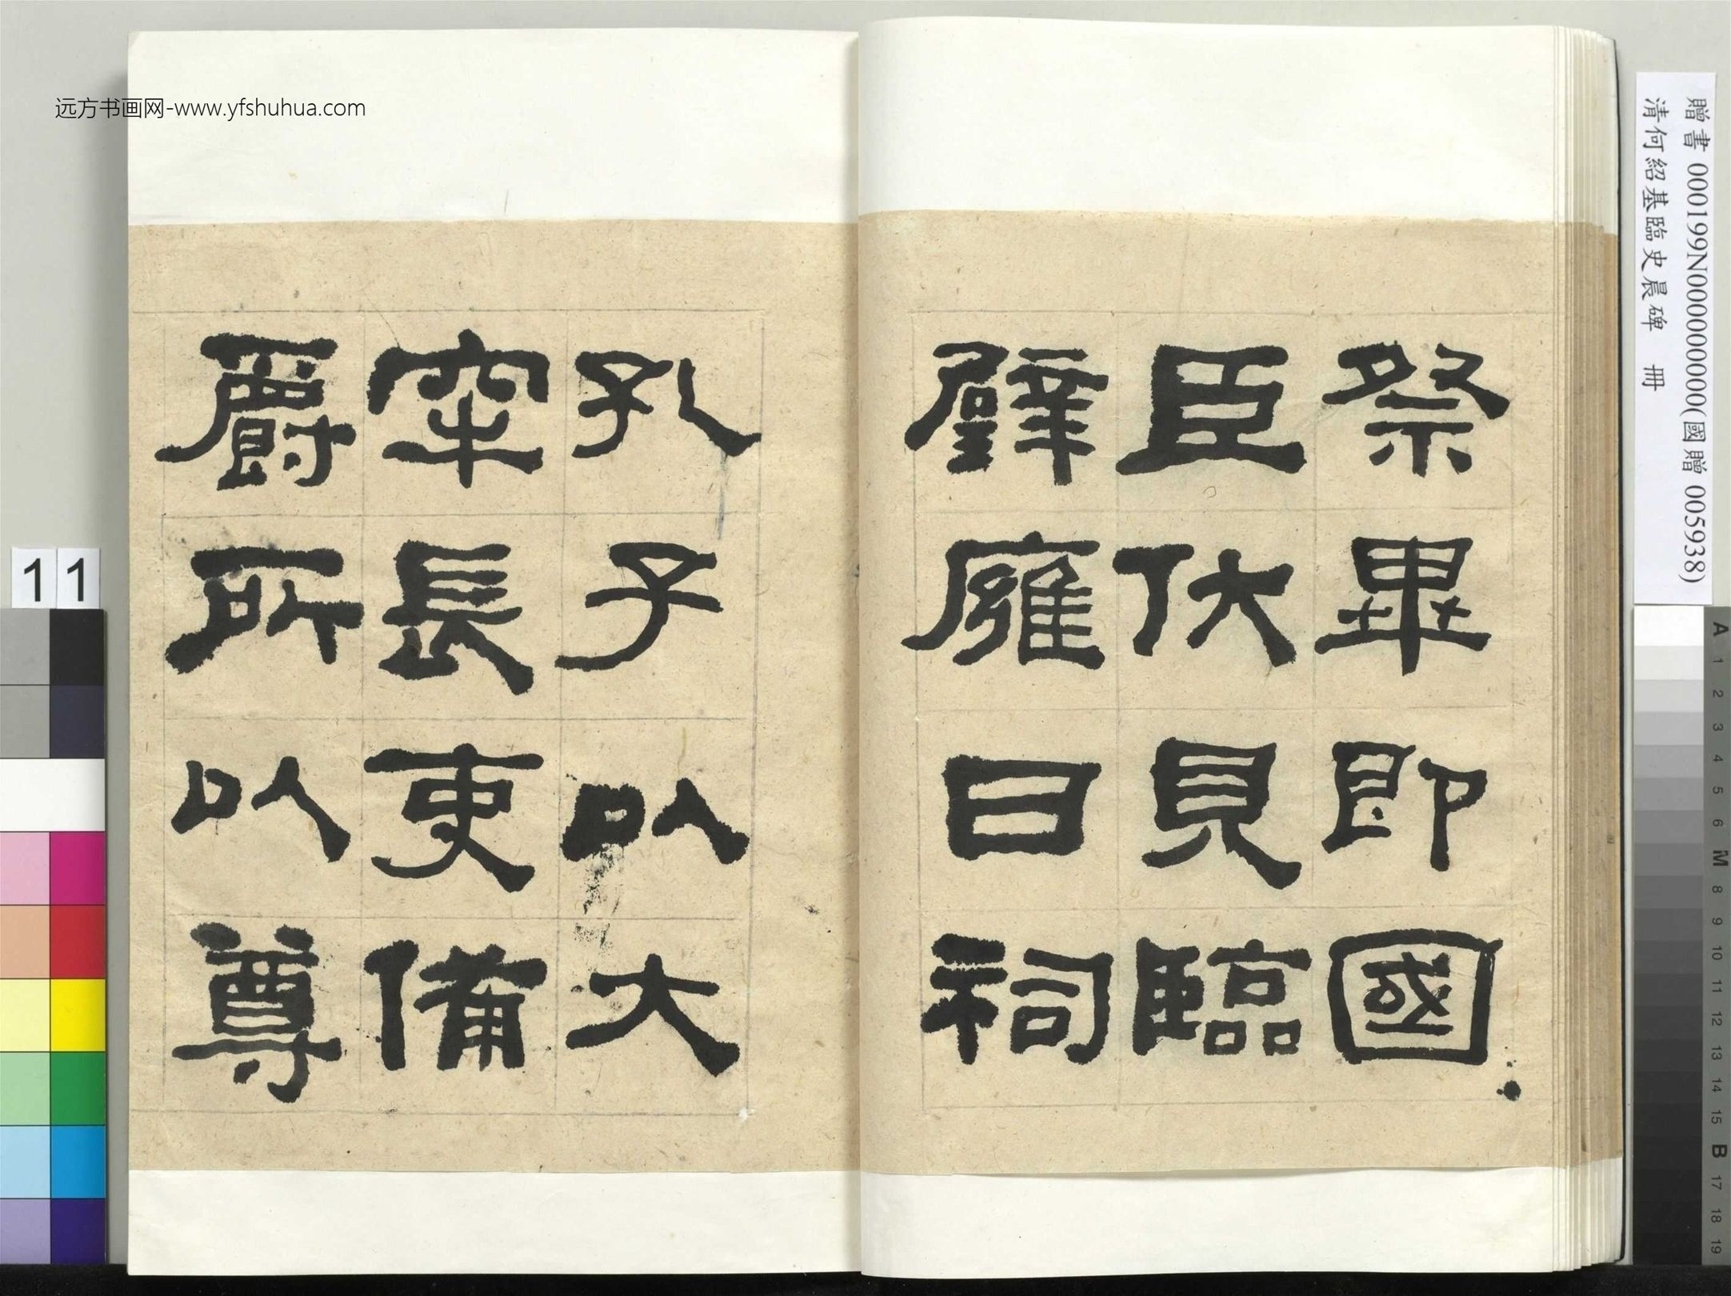 远方书画网-www.yfshuhua.com
祭畢即國
臣伏見臨
辟廱日祠
孔子以大
牢長吏備
爵所以尊
贈書 000199N000000000(國贈 005938)
清何紹基臨史晨碑 冊
11
A
1
2
3
4
5
6
M
8
9
10
11
12
13
14
15
B
17
18
19